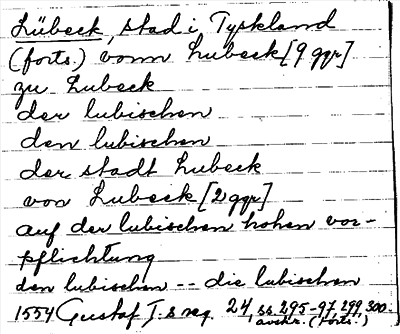 Lübeck, stad i Tyskland
(forts.) vonn Lubeck [9 ggr]
zu Lubeck
der lubischen
den lubischen
der stadt Lubeck
von Lubeck [2 ggr]
auf der lubischen hohen vor-
pflichtung
den lubischen -- die lubischen
1554 Gustaf I.s reg. 24, ss. 295-97, 299, 300.
avskr. (forts.)